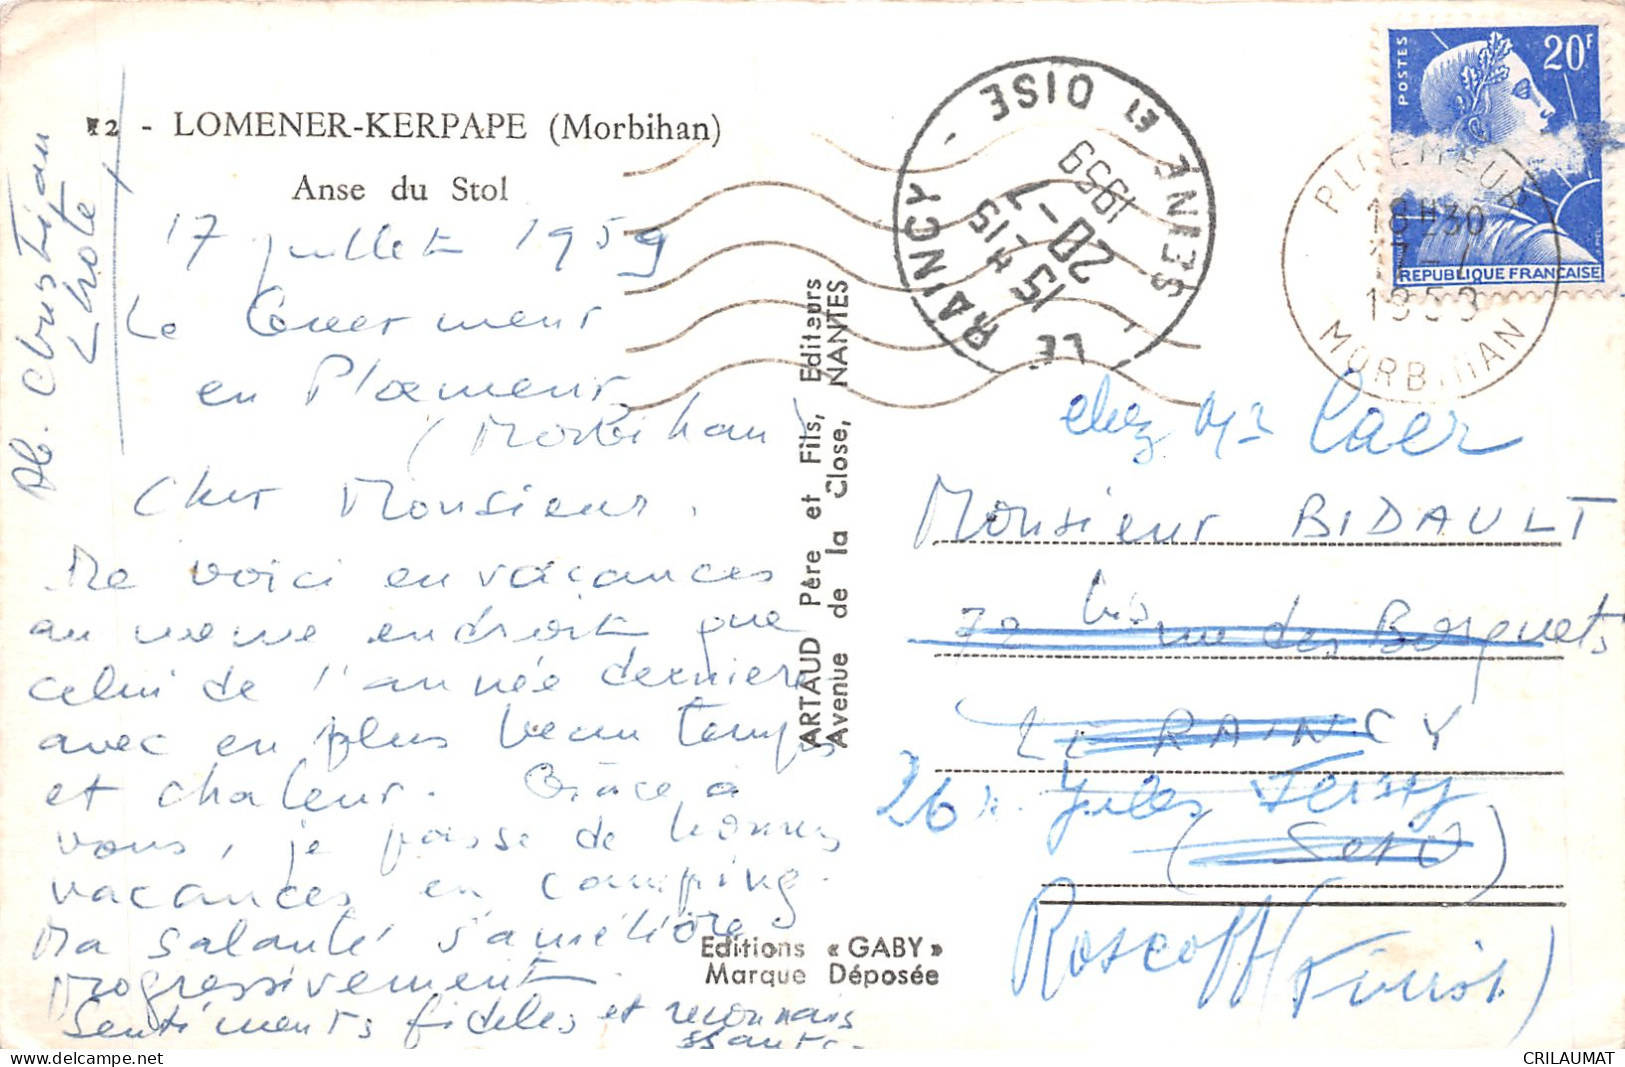 72 - LOMENER-KERPAPE (Morbihan)
Anse du Stol
Ab. Christian
Lhote
17 juillet 1959
Le Couermeur
en Ploemeur
(Morbihan)
Cher Monsieur,
Me voici en vacances
au meme endroit que
celui de l'année derniere
avec en plus beau temps
et chaleur. Grâce à
vous, je passe de bonnes
vacances en camping.
Ma santé s'améliore
progressivement.
Sentiments fideles et reconnais
ssants.
ARTAUD Père et Fils, Editeurs
Avenue de la Close, NANTES
Editions « GABY »
Marque Déposée
LE RAINCY - SEINE ET OISE
15 H 15
20-7
1959
POSTES
20F
REPUBLIQUE FRANÇAISE
PLOEMEUR
18H30
17-7
1959
MORBIHAN
chez Mr Caer
Monsieur BIDAULT
70 bis rue des Bosquets
LE RAINCY
26 r. Jules Ferry
(S et O)
Roscoff (Finist.)
CRILAUMAT